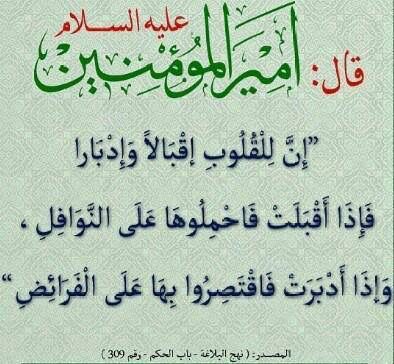 قال: أَمِيرُ المُؤْمِنِين عليه السلام
”إِنَّ لِلْقُلُوبِ إقْبَالاً وَإِدْبَارا
فَإِذَا أَقْبَلَتْ فَاحْمِلُوهَا عَلَى النَّوَافِلِ ،
وَإِذَا أَدْبَرَتْ فَاقْتَصِرُوا بِهَا عَلَى الْفَرَائِضِ“
المصدر: ( نهج البلاغة - باب الحكم - رقم 309 )